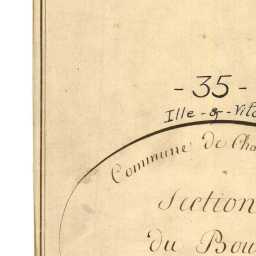 - 35 -
Ille - & - Vila
Commune de Cha
Section
du Bou